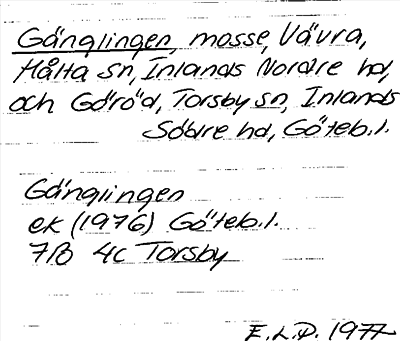 Gänglingen, mosse, Vävra,
Hålta sn, Inlands Nordre hd,
och Göröd, Torsby sn, Inlands
Södre hd, Göteb.l.
Gänglingen
ek (1976) Göteb.l.
7B 4c Torsby
E.L.P. 1977